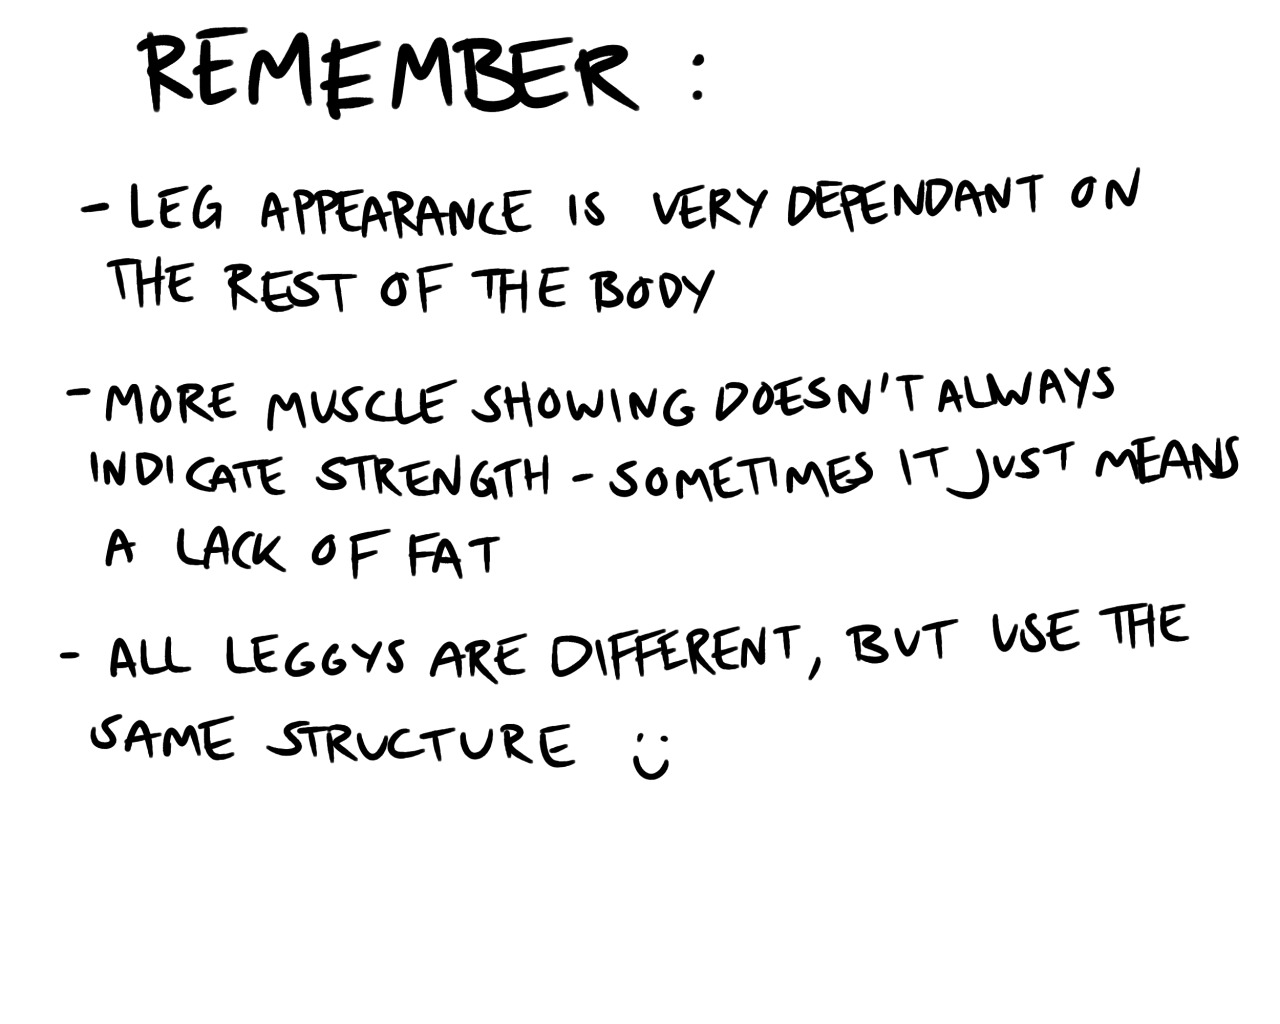 REMEMBER :
- LEG APPEARANCE IS VERY DEPENDANT ON
THE REST OF THE BODY
- MORE MUSCLE SHOWING DOESN'T ALWAYS
INDICATE STRENGTH - SOMETIMES IT JUST MEANS
A LACK OF FAT
- ALL LEGGYS ARE DIFFERENT, BUT USE THE
SAME STRUCTURE :)